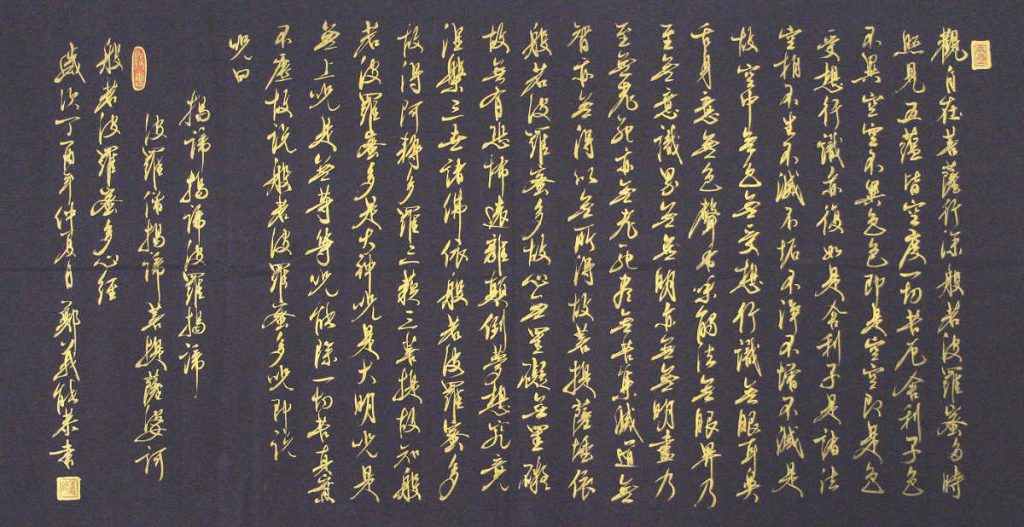 觀自在菩薩行深般若波羅蜜多時
照見五蘊皆空度一切苦厄舍利子色
不異空空不異色色即是空空即是色
受想行識亦復如是舍利子是諸法
空相不生不滅不垢不淨不增不減是
故空中無色無受想行識無眼耳鼻
舌身意無色聲香味觸法無眼界乃
至無意識界無無明亦無無明盡乃
至無老死亦無老死盡無苦集滅道無
智亦無得以無所得故菩提薩埵依
般若波羅蜜多故心無罣礙無罣礙
故無有恐怖遠離顛倒夢想究竟
涅槃三世諸佛依般若波羅蜜多
故得阿耨多羅三藐三菩提故知般
若波羅蜜多是大神咒是大明咒是
無上咒是無等等咒能除一切苦真實
不虛故說般若波羅蜜多咒即說
咒曰
揭諦揭諦波羅揭諦
波羅僧揭諦菩提薩婆訶
般若波羅蜜多心經
歲次丁酉年仲夏月鄭義能恭書